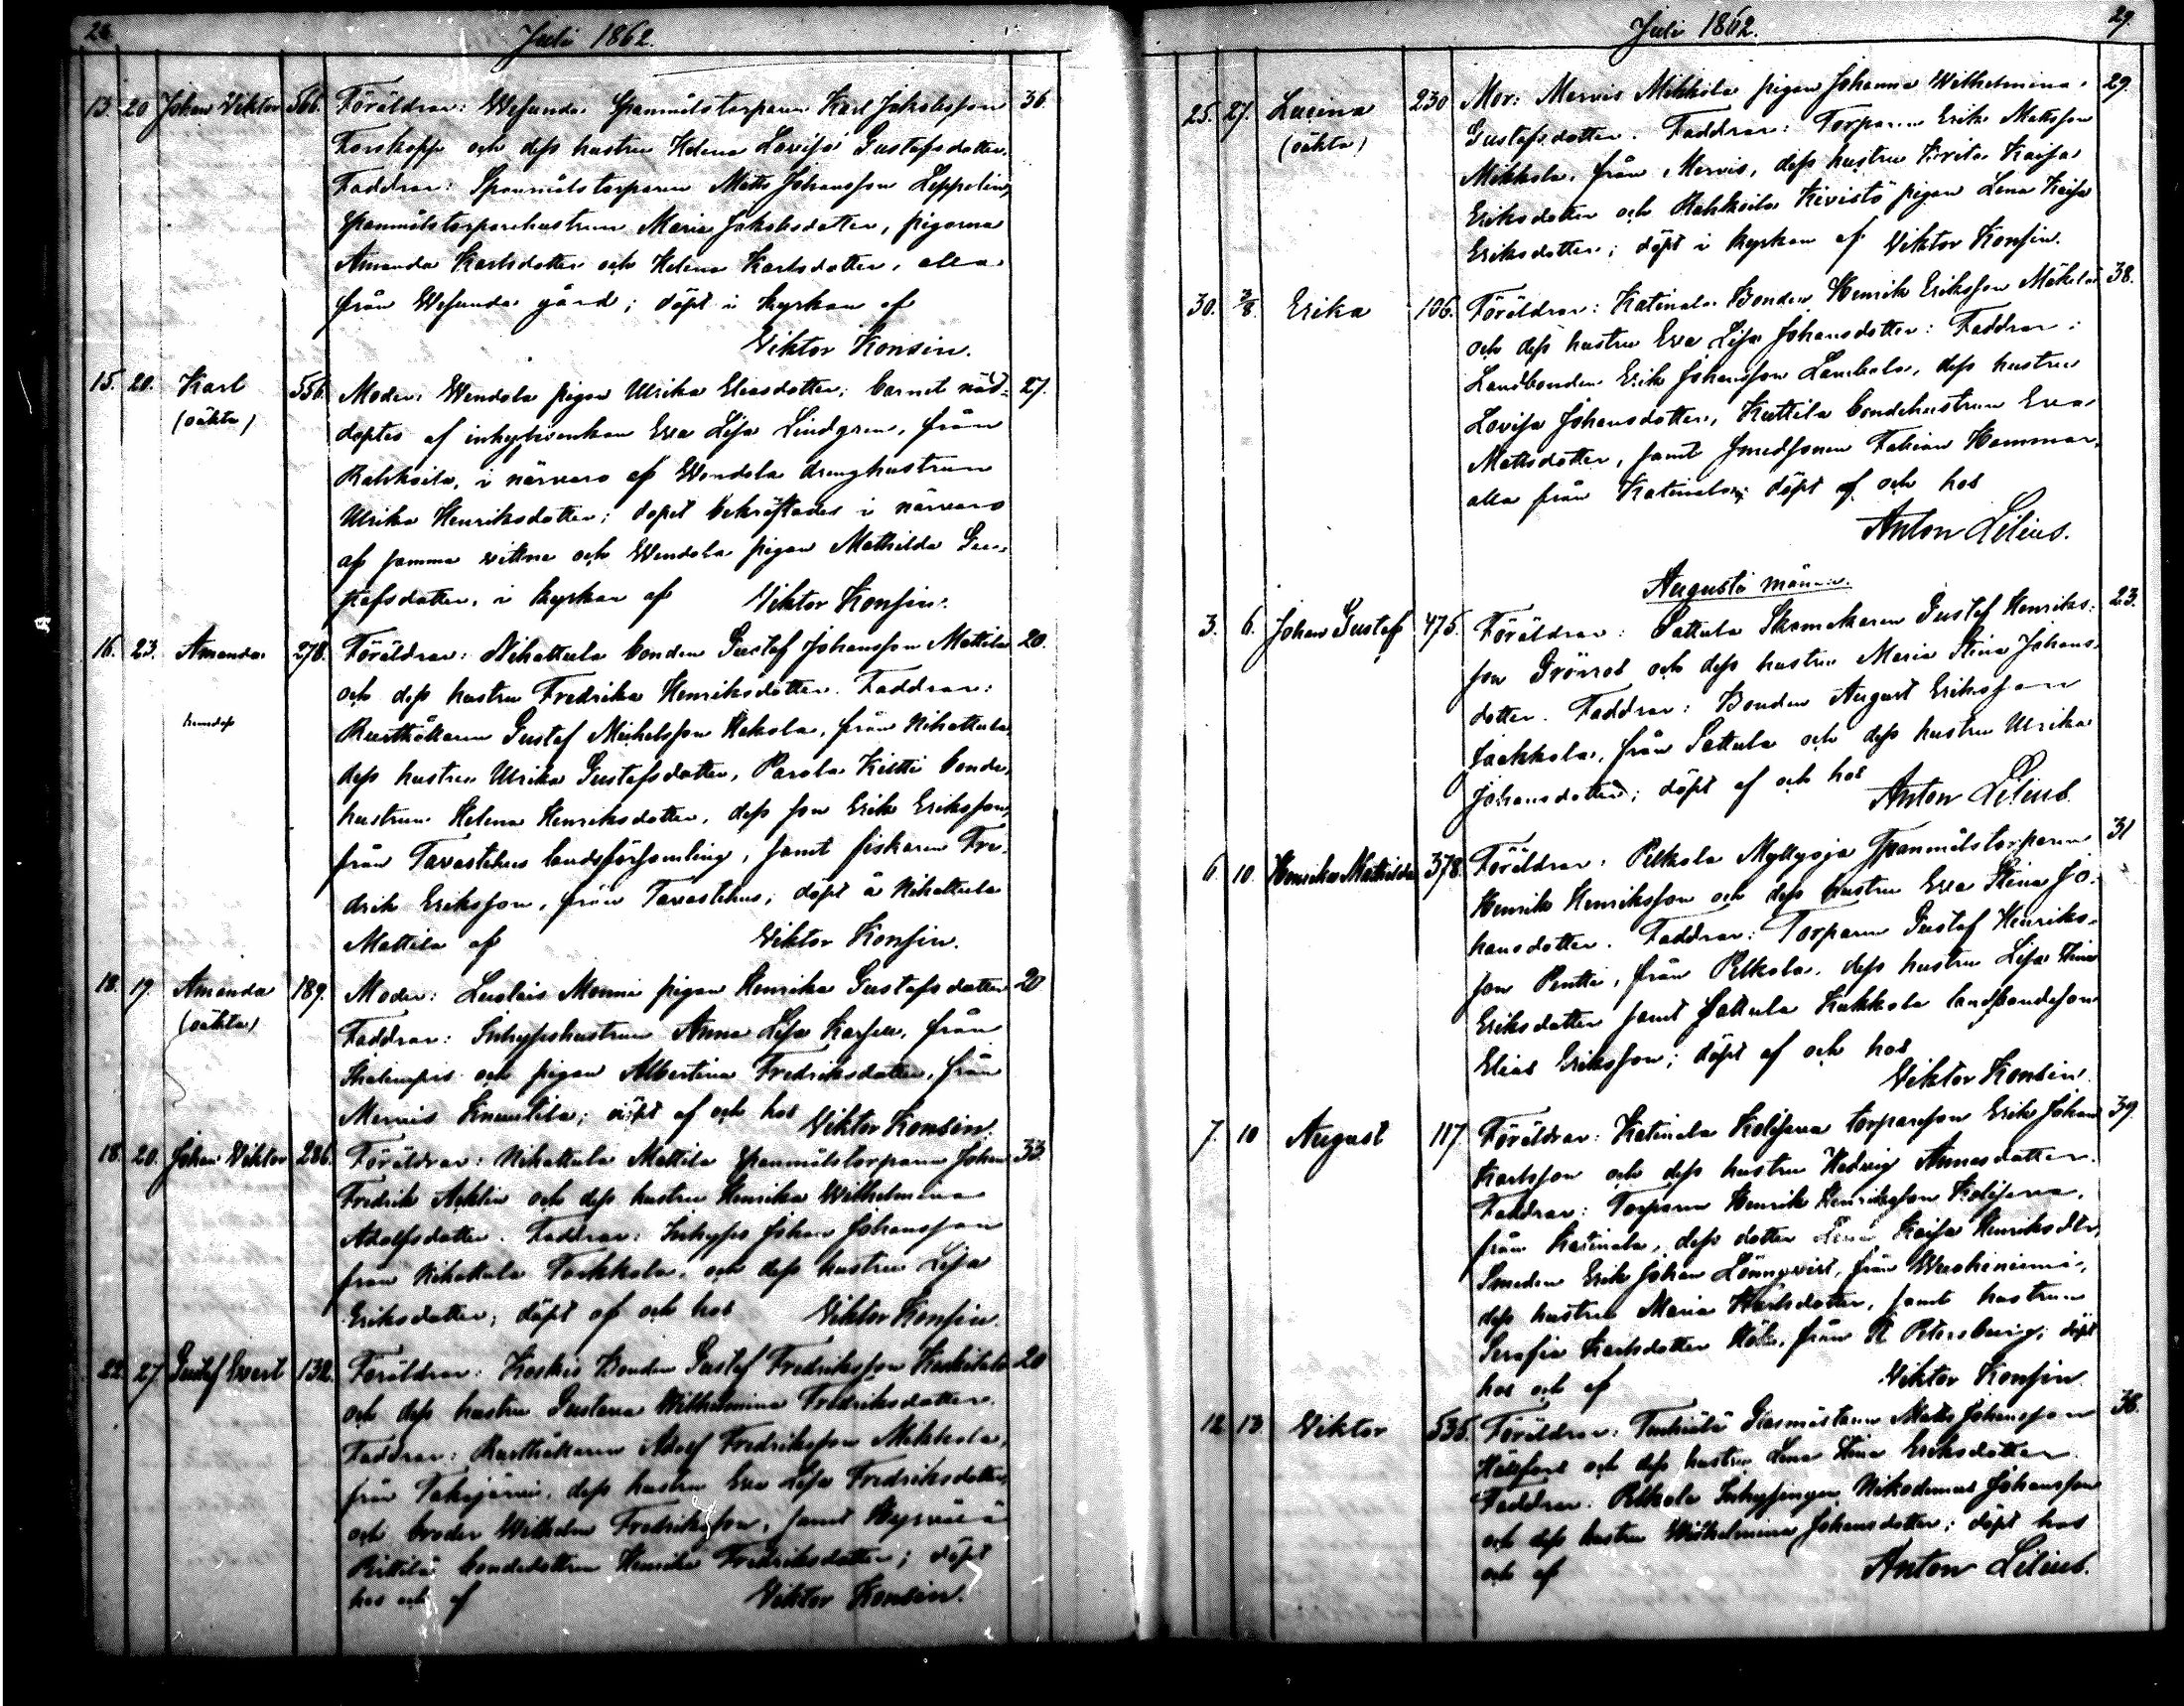 28.
Juli 1862.
13. 20 Johan Viktor 566. Föräldrar: Wesunda Spanmålstorparen Karl Jakobsson 36.
Forskopp och dess hustru Helena Lovisa Gustafsdotter.
Faddrar: Spanmålstorparen Matts Johansson Leppelin,
spanmålstorparehustrun Maria Jakobsdotter, pigorna
Amanda Karlsdotter och Helena Karlsdotter, alla
från Wesunda gård; döpt i kyrkan af
Viktor Konsin.
15. 20. Karl 556. Moder: Wendola pigan Ulrika Eliasdotter; barnet nöd- 27.
(oäkta) döptes af inhyseskan Eva Lisa Lindgren, från
Rahkoila, i närvaro af Wendola drenghustrun
Ulrika Henriksdotter; dopet bekräftades i närvaro
af samma vittne och Wendola pigan Mathilda Gus-
tafsdotter, i kyrkan af Viktor Konsin.
16. 23. Amanda 278. Föräldrar: Nihattula bonden Gustaf Johansson Mattila 20.
och dess hustru Fredrika Henriksdotter. Faddrar:
hemdöp Rusthållaren Gustaf Michelsson Hakola, från Nihattula,
dess hustru Ulrika Gustafsdotter, Parola Kiltti bonde-
hustrun Helena Henriksdotter, dess son Erik Eriksson,
från Tavastehus landsförsamling, samt fiskaren Fre-
drik Eriksson, från Tavastehus; döpt å Nihattula
Mattila af Viktor Konsin.
18. 19. Amanda 189. Moder: Leiniäis Monni pigan Henrika Gustafsdotter 20
(oäkta) Faddrar: Inhyseshustrun Anna Lisa Karsen, från
och pigan Albertina Fredriksdotter, från
Mervis Knuutila; döpt af och hos Viktor Konsin.
18. 20. Johan Viktor 286. Föräldrar: Nihattula Mattila spanmålstorparen Johan 33.
Fredrik Acklin och dess hustru Henrika Wilhelmina
Adolfsdotter. Faddrar: Inhyses Johan Johansson
från Nihattula Tackkola, och dess hustru Lisa
Eriksdotter; döpt af och hos Viktor Konsin.
22. 27. Gustaf Evert 132. Föräldrar: Koskis Bonden Gustaf Fredriksson 20
och dess hustru Gustava Wilhelmina Fredriksdotter.
Faddrar: Rusthållaren Adolf Fredriksson Mikkola,
från Takajärvi, dess hustru Eva Lisa Fredriksdotter,
och broder Wilhelm Fredriksson, samt
bondedottren Henrika Fredriksdotter; döpt
hos och af Viktor Konsin.
29.
Juli 1862.
25. 27. Lucina 230 Mor: Mervis Mikkola pigan Johanna Wilhelmina 29.
(oäkta) Gustafsdotter. Faddrar: Torparen Erik Mattsson
Mikkola, från Mervis, dess hustru Brita Kaisa
Eriksdotter och Rahkoila Kivistö pigan Lena Kaisa
Eriksdotter; döpt i kyrkan af Viktor Konsin.
30. 3/8 Erika 106. Föräldrar: Katinala Bonden Henrik Eriksson Mäkelä 38.
och dess hustru Eva Lisa Johansdotter: Faddrar:
Landbonden Erik Johansson Lambola, dess hustru
Lovisa Johansdotter, Kuttila bondehustrun Eva
Mattsdotter, samt smedsonen Fabian Hammar,
alla från Katinala; döpt af och hos
Anton Lilius.
Augusti månad.
3. 6. Johan Gustaf 475. Föräldrar: Sattula Skomakaren Gustaf Henriks- 23.
son Grönros och dess hustru Maria Stina Johans-
dotter. Faddrar: Bonden August Eriksson
Jackkola, från Sattula och dess hustru Ulrika
Johansdotter; döpt af och hos
Anton Lilius.
6. 10. Henrika Mathilda 378. Föräldrar: Pelkola Myllyoja Spanmålstorparen 31
Henrik Henriksson och dess hustru Eva Stina Jo-
hansdotter. Faddrar: Torparen Gustaf Henriks-
son Pentti, från Pelkola, dess hustru Lisa Stina
Eriksdotter samt Sattula Kukkola landbondeson
Elias Eriksson; döpt af och hos
Viktor Konsin.
7. 10 August 117. Föräldrar: Katinala Koliseva torpareson Erik Johan 39.
Karlsson och dess hustru Hedvig Annasdotter.
Faddrar: Torparen Henrik Henriksson Koliseva,
från Katinala, dess dotter Lena Kaisa Henriksdtr,
Smeden Erik Johan Lönnqvist, från Wuohiniemi,
dess hustru Maria Karlsdotter, samt hustrun
Serafia Karlsdotter från St Petersburg; döpt
hos och af Viktor Konsin.
12. 13. Viktor 535. Föräldrar: Glasmästaren Matts Johansson 38.
Hälsfors och dess hustru Lena Stina Eriksdotter.
Faddrar: Pelkola Inhysingen Nikodemus Johansson
och dess hustru Wilhelmina Johansdotter; döpt hos
och af Anton Lilius.